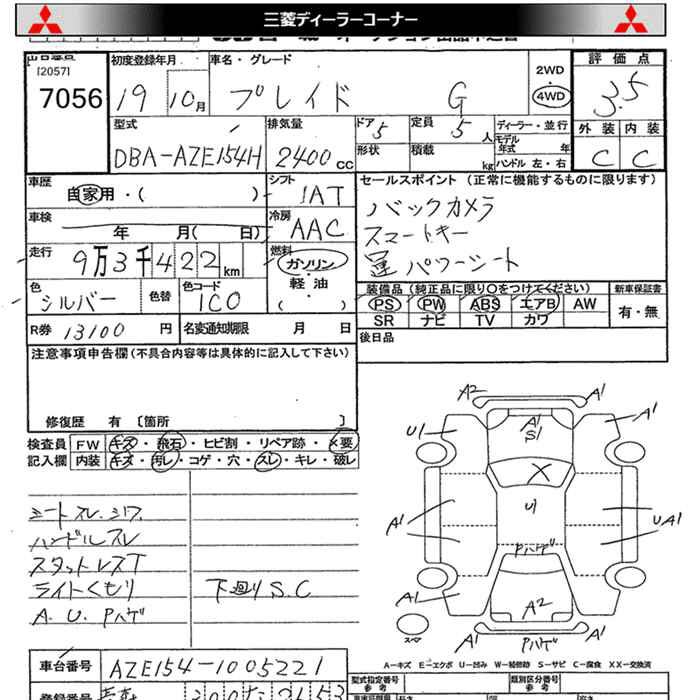 三菱ディーラーコーナー
[2057]
7056
初度登録年月
19 10月
車名・グレード
ブレイド G
2WD
・
4WD
評価点
3.5
外装 内装
C C
型式
DBA-AZE154H
排気量
2400 CC
ドア 5
定員 5 人
形状
積載 kg
ディーラー・並行
モデル年式 年
ハンドル 左・右
車歴
自家用・( )
シフト
IAT
車検
年 月( 日)
冷房
AAC
走行
9万3千422km
燃料
ガソリン
・
軽油
( )
色
シルバー
色替
色コード
1C0
R券 13100 円
名変通知期限 月 日
セールスポイント (正常に機能するものに限ります)
バックカメラ
スマートキー
運 パワーシート
装備品 (純正品に限り〇をつけてください)
新車保証書
PS PW ABS エアB AW
SR ナビ TV カワ
有・無
後日品
注意事項申告欄(不具合内容等は具体的に記入して下さい)
修復歴 有 [箇所 ]
検査員
記入欄
FW キズ・飛石・ヒビ割・リペア跡・X要
内装 キズ・汚レ・コゲ・穴・スレ・キレ・破レ
シートスレ、シワ
ハンドルスレ
スタットレスT
ライトくもり
下廻りS.C
A.U.Pハゲ
A2 A1
U1 A1 S1 A1
X
A1 U1 UA1
Pハゲ
A1 A2 A1
スペア Pハゲ
A-キズ E-エクボ U-凹み W-補修跡 S-サビ C-腐食 XX-交換済
車台番号
AZE154-1005221
型式指定番号
参考
類別区分番号
参考
登録番号